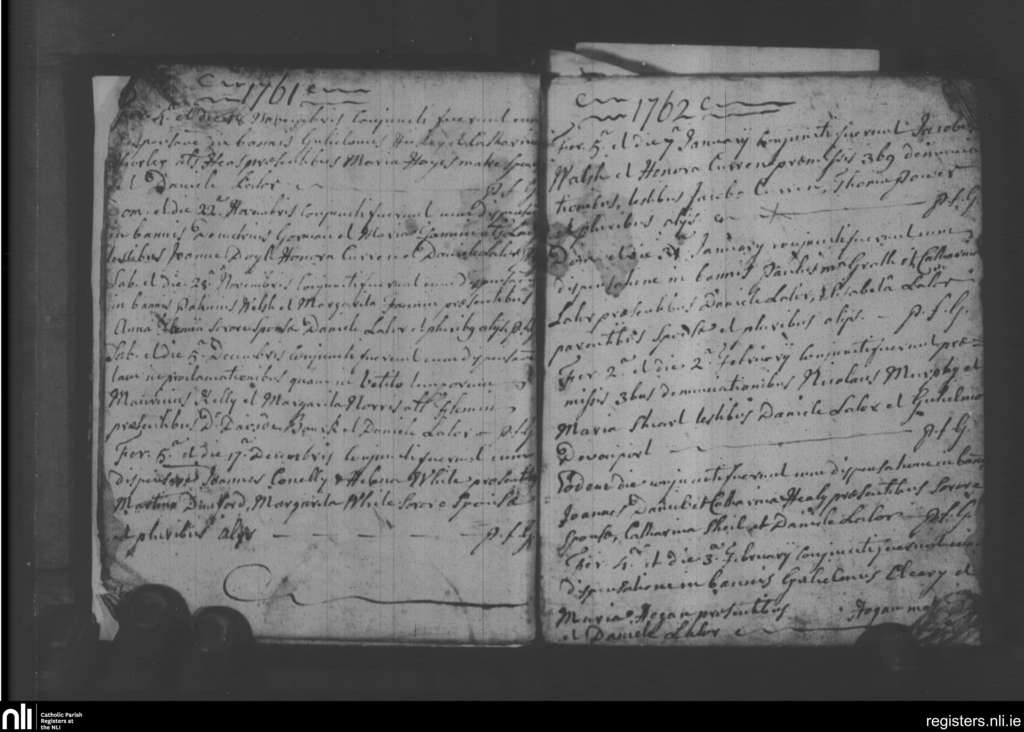 1761
Fer. 4ª et die Novembris Conjuncti fuerunt cum
dispensãone in bannis Gulielmus Hurley et Catharina
Hurley als Heas præsentibus Maria Hayes
et Daniele Lalor
P.f.G.
Dom. et die 22ª Novembris Conjuncti fuerunt cum dispensãone
in bannis Demetrius Gorman et Maria
testibus Joanne Doyle Honora Curren et Daniele Lalor
Sab. et die 28ª Novembris Conjuncti fuerunt cum dispensãone
in bannis Patricius Welsh et Margarita præsentibus
Anna Sorore Sponsæ Daniele Lalor et pluribq alijs. P.f.G.
Sab. et die 5ª Decembris Conjuncti fuerunt cum dispensãone
tam in proclamationibus quam in Vetito temporum
Mauritius Kelly et Margarita Norris als
præsentibus D. Davide Bourk et Daniele Lalor P.f.G.
Fer. 5ª et die 17ª Decembris Conjuncti fuerunt cum
dispensãone Joannes Conelly & Helena White præsentibus
Martino Dunford, Margarita White Sorore Sponsæ
et pluribus alijs P.f.G.
1762
Fer. 5ª et die 7ª Januarij Conjuncti fuerunt Jacobus
Walsh et Honora Curren præmissis 3bq denuncia
tionibus, testibus Jacobo Curren, Thoma Power
et pluribus alijs P.f.G.
Januarij conjuncti fuerunt cum
dispensatione in bannis Paulus McGrath et Catharina
Lalor præsentibus Daniele Lalor, & Elisabeta Lalor
parentibus Sponsæ et pluribus alijs. P.f.G.
Fer 3ª et die 2ª Februarij Conjuncti fuerunt præ=
misis 3bus denunciationibus Nicolaus Murphy et
Maria Stuart testibus Daniele Lalor et Gulielmo
Devonport P.f.G.
Eodem die conjuncti fuerunt cum dispensatione in bannis
Joannes Daniel et Catharina Healy præsentibus Sorore
Sponsæ, Catharina Sheil et Daniele Lalor P.f.G.
Fer. 4ª et die 3ª Februarij conjuncti fuerunt cum
dispensatione in bannis Gulielmus Cleary et
Maria Hogan præsentibus Hogan
et Daniele Lalor
nli
Catholic Parish
Registers at
the NLI
registers.nli.ie